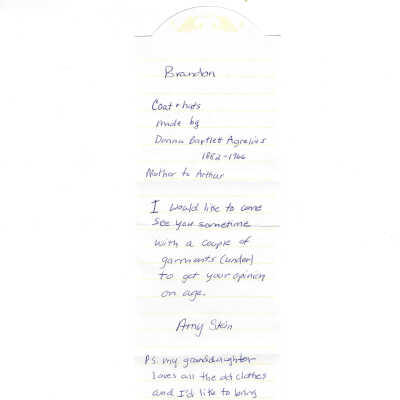 Brandon
Coat + hats
made by
Donna Bartlett Agrelius
1882-1966
Mother to Arthur
I would like to come
see you sometime
with a couple of
garments (under)
to get your opinion
on age.
Amy
P.S. my granddaughter
loves all the old clothes
and I'd like to bring